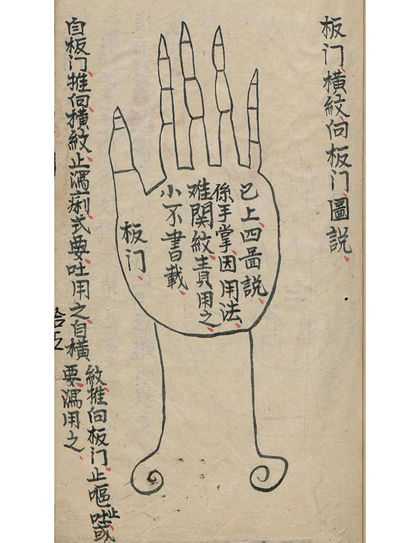 板门橫紋向板门圖說、
已上四圖說、
係手掌因用法、
难関紋責用之、
小不書載、
板门、
自板门推向橫紋止瀉痢式要吐用之自橫
紋推向板门止嘔吐止或
要瀉用之、